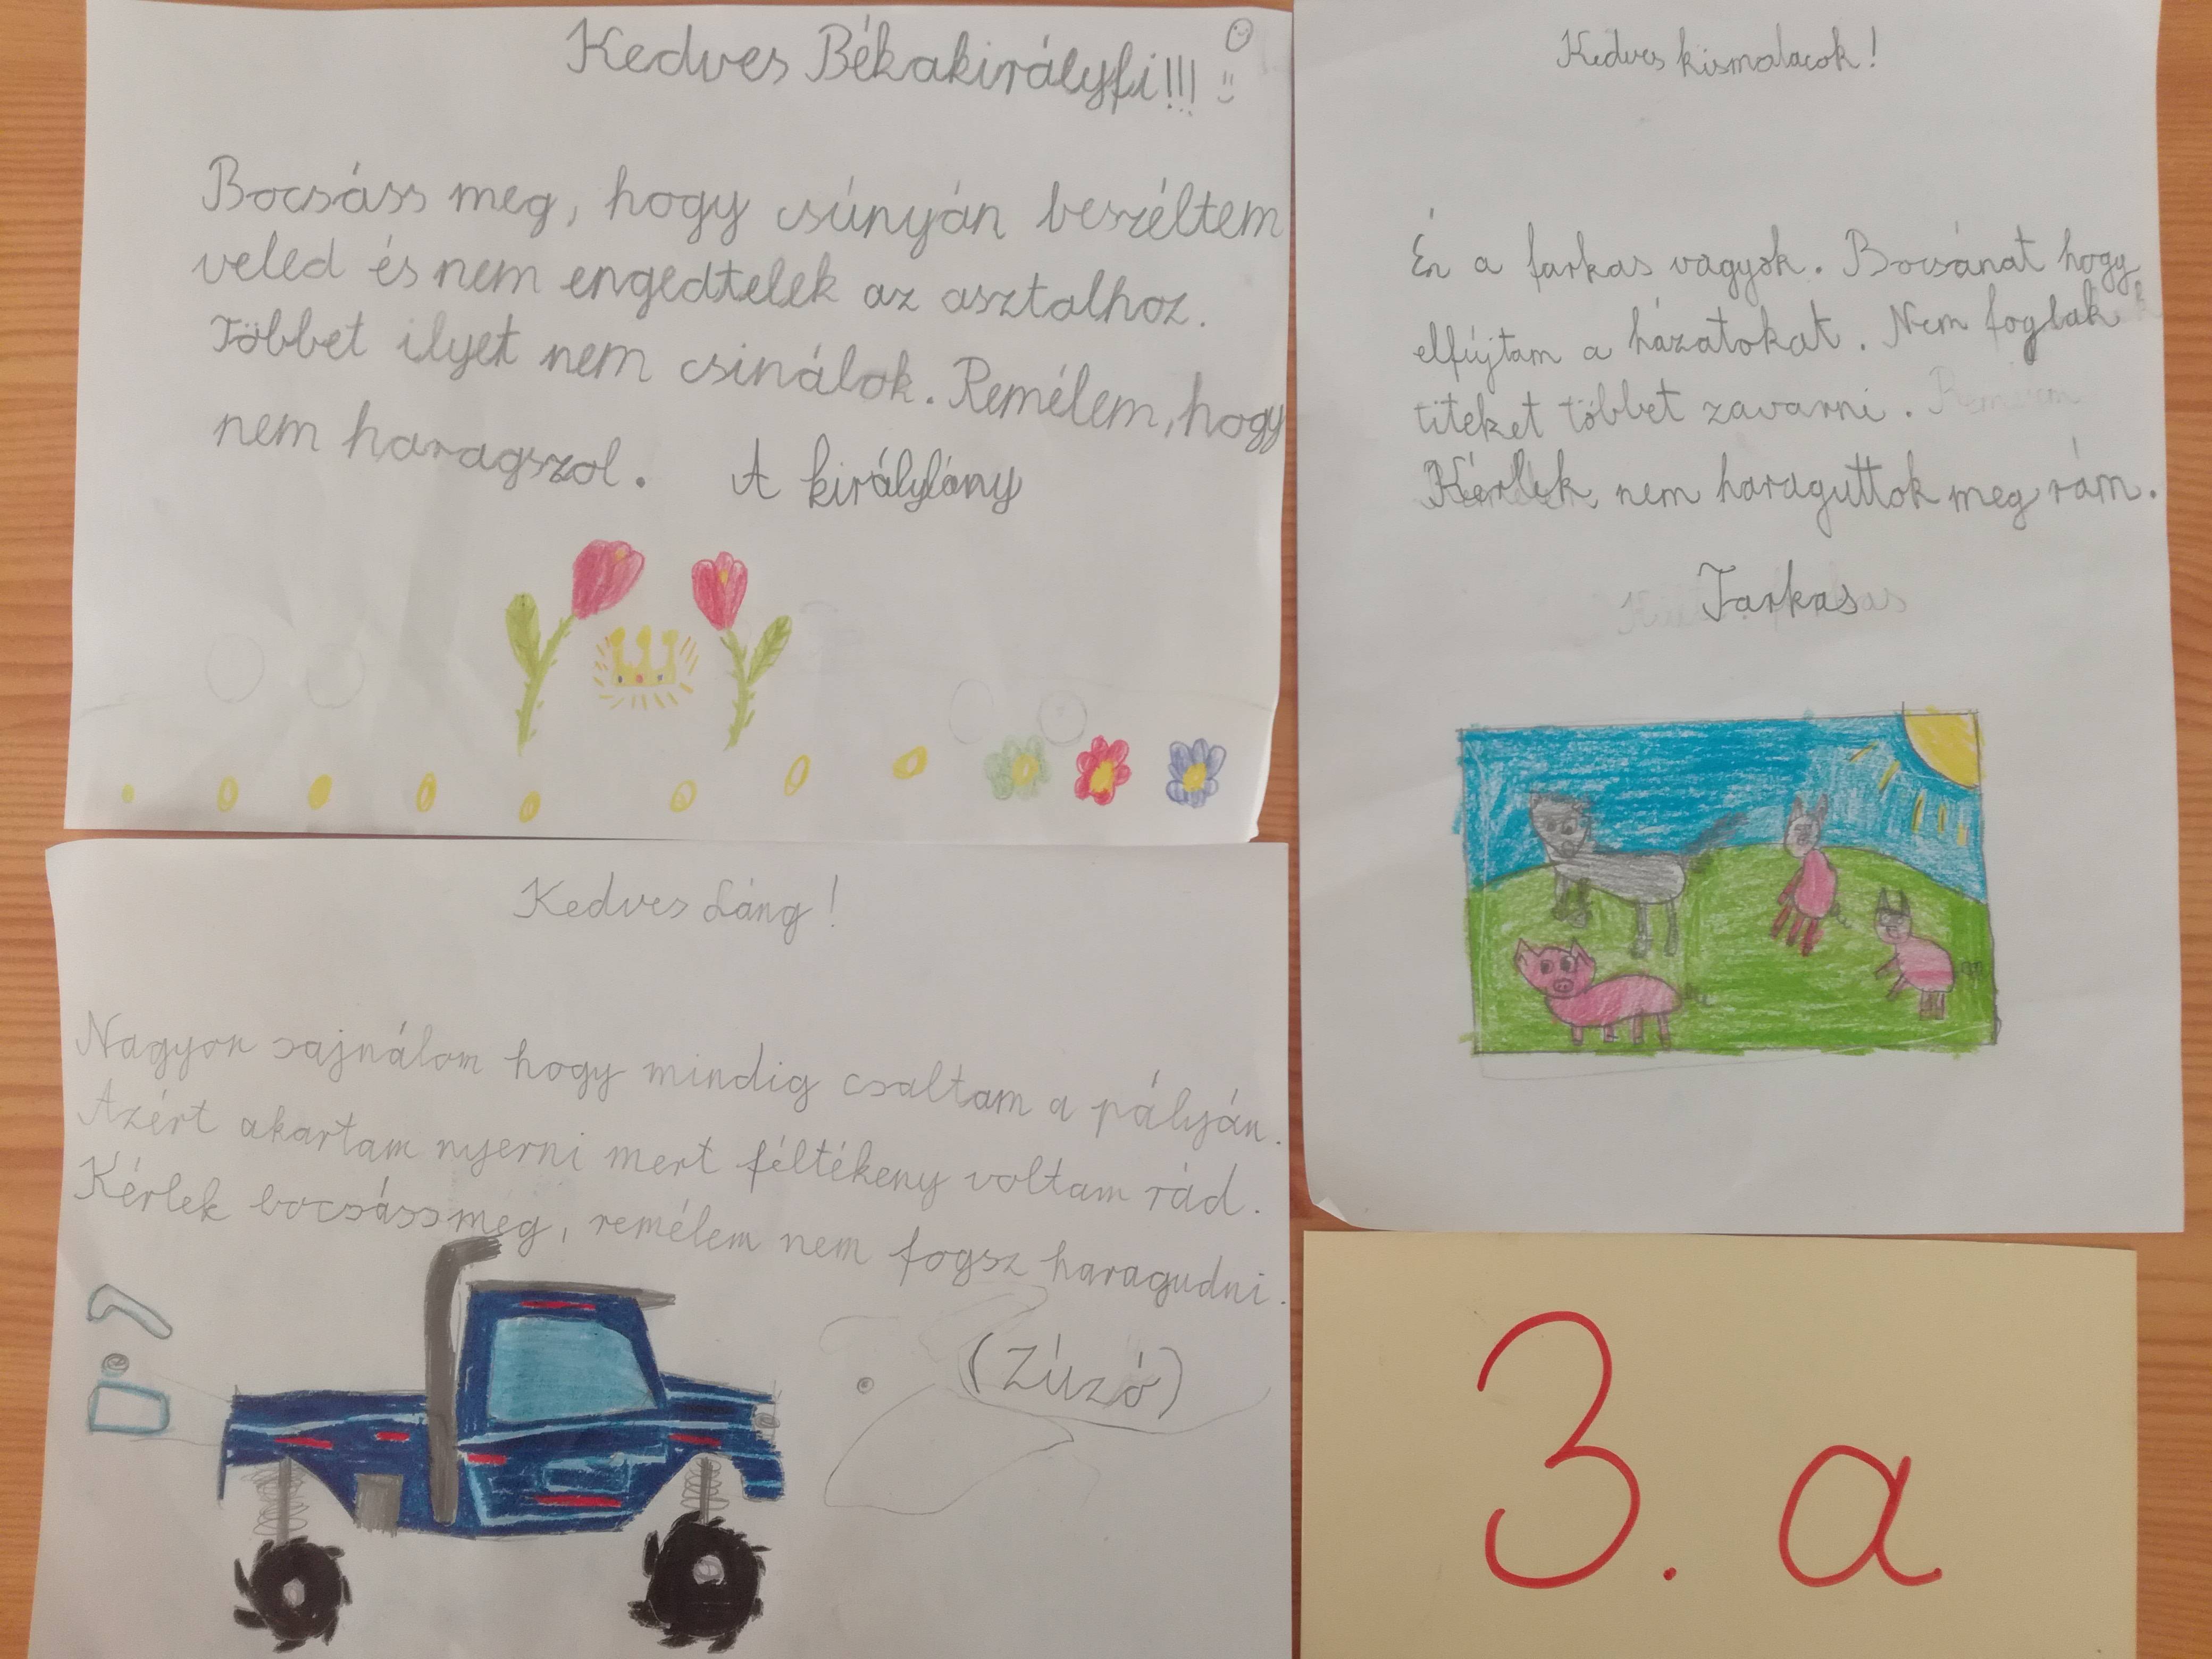 Kedves Békakirályfi!!!
Bocsáss meg, hogy csúnyán beszéltem
veled és nem engedtelek az asztalhoz.
Többet ilyet nem csinálok. Remélem, hogy
nem haragszol. A királylány
Kedves kismalacok!
Én a farkas vagyok. Bocsánat hogy
elfújtam a házatokat. Nem foglak
titeket többet zavarni.
Kérlek nem haraguttok meg rám.
Farkas
Kedves Láng!
Nagyon sajnálom hogy mindig csaltam a pályán.
Azért akartam nyerni mert féltékeny voltam rád.
Kérlek bocsássmeg, remélem nem fogsz haragudni.
(Zúzó)
3. a